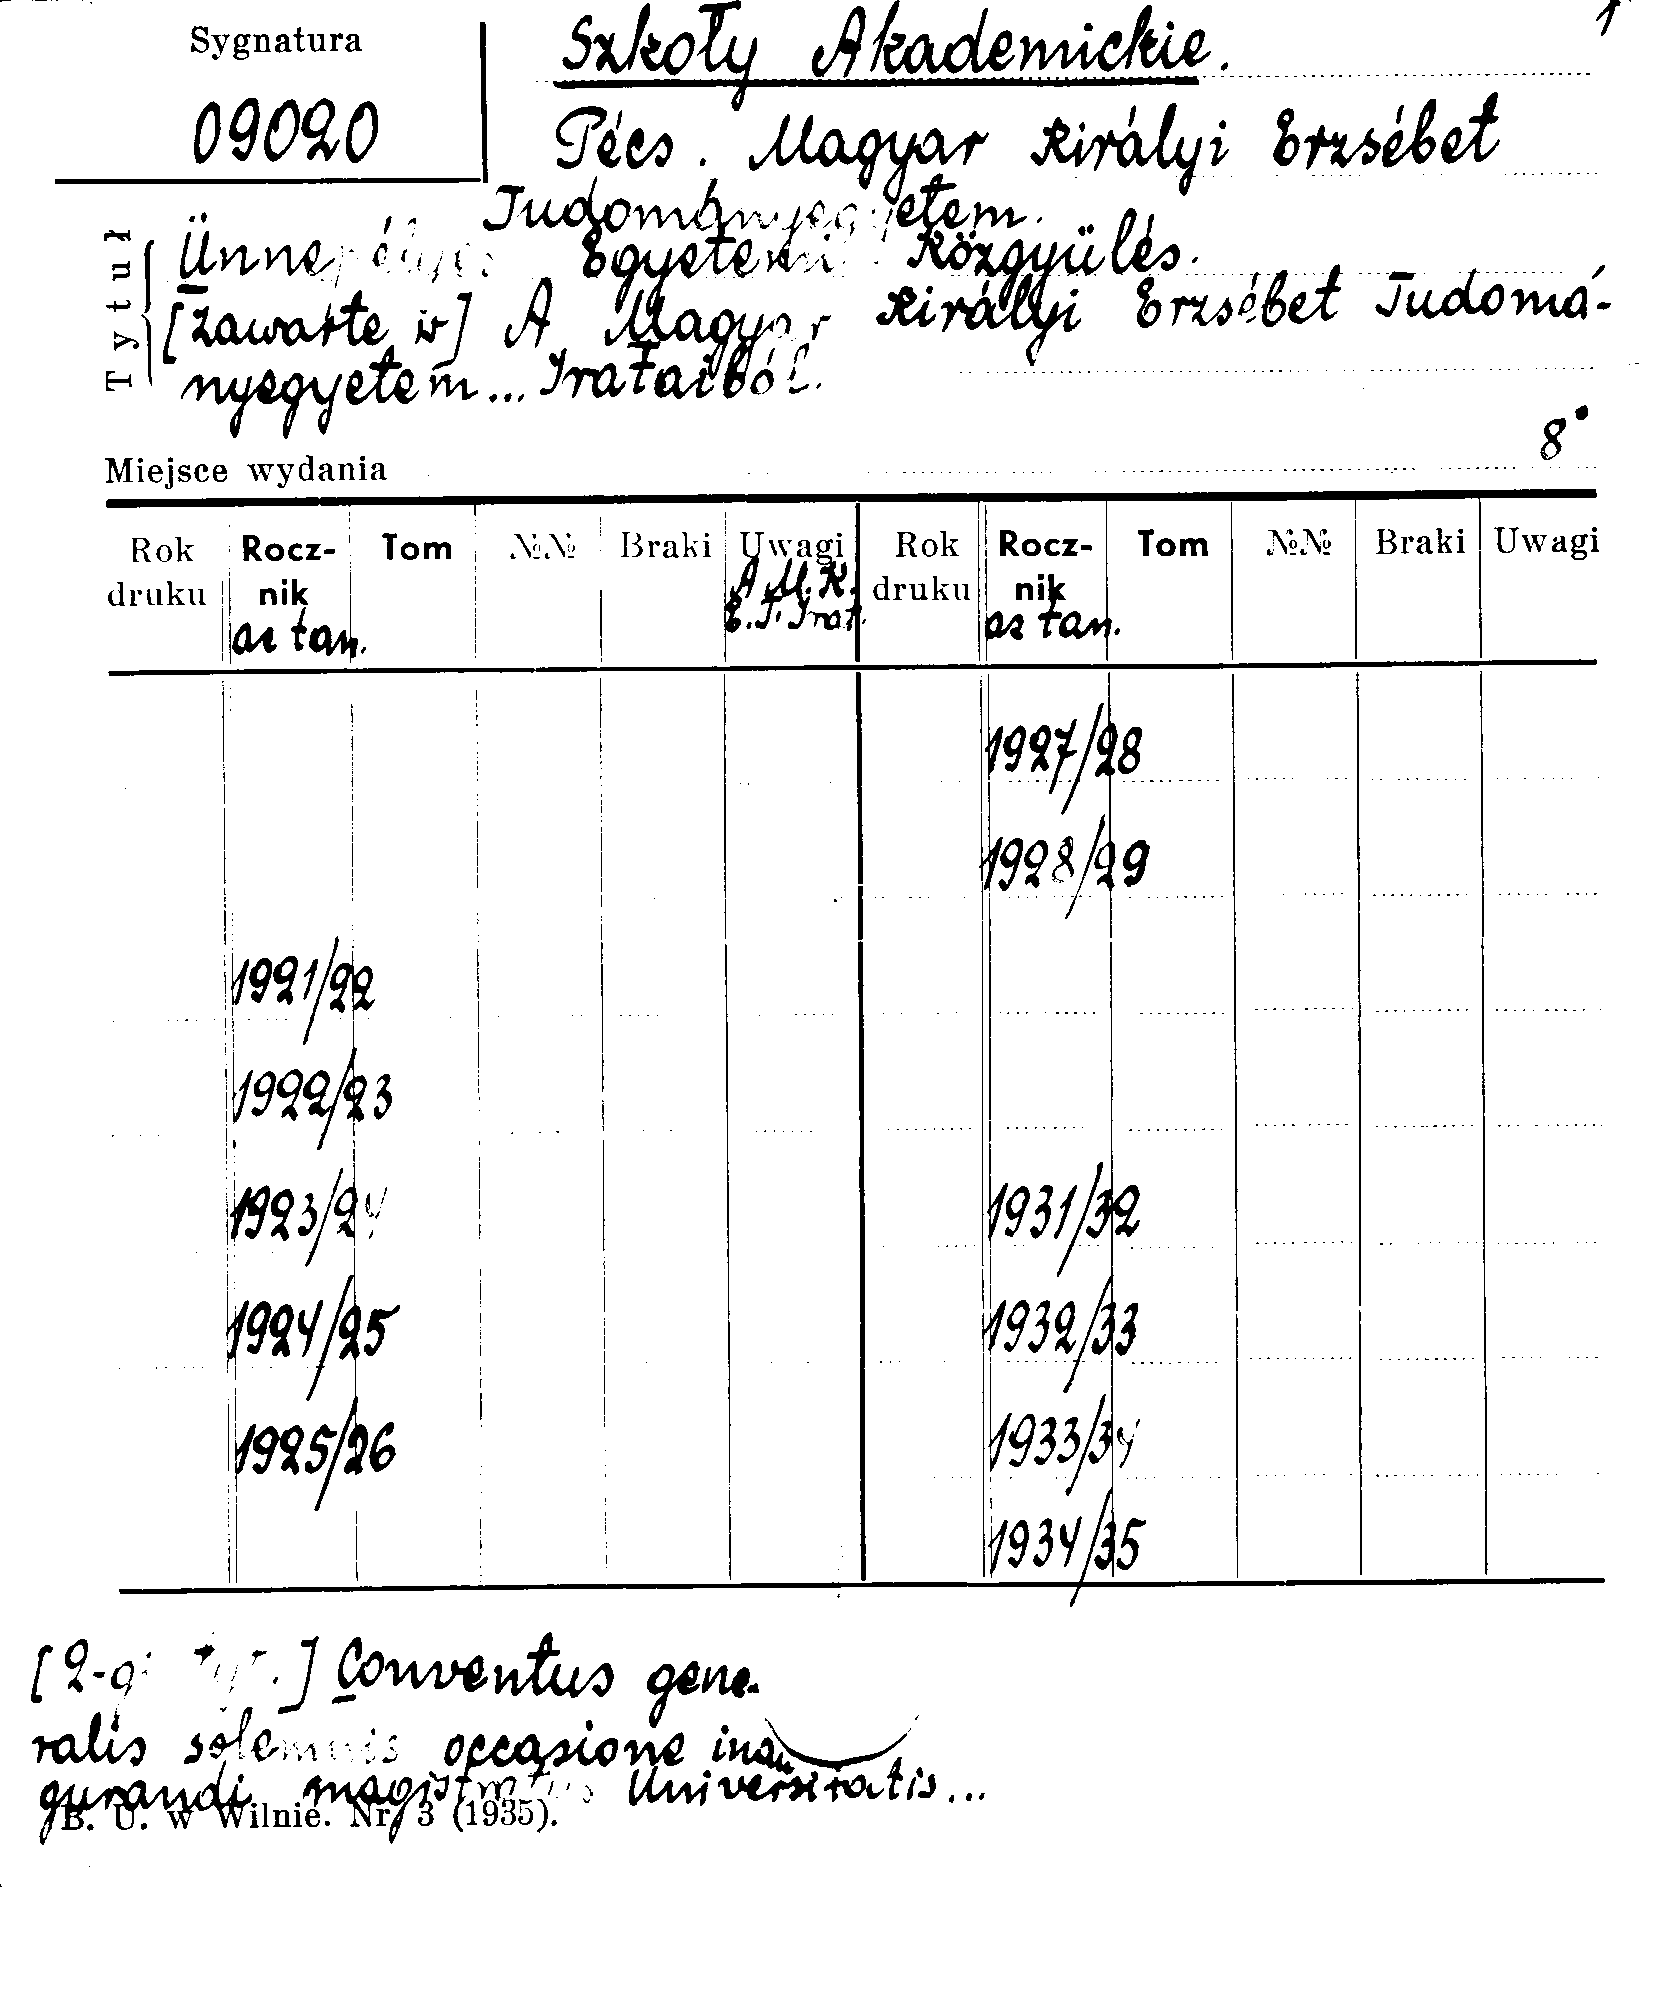 1
Sygnatura
09020
Szkoły Akademickie.
Pécs. Magyar Királyi Erzsébet
Tudományegyetem.
Tytuł
Ünnepélyes Egyetemi Közgyülés.
[zawarte w] A Magyar Királyi Erzsébet Tudomá-
nyegyetem... Irataiból.
8°
Miejsce wydania
Rok druku Rocz-nik Tom №№ Braki Uwagi Rok druku Rocz-nik Tom №№ Braki Uwagi
az tan. A M. K. E. T. Irat. az tan.
1927/28
1928/29
1921/22
1922/23
1923/24 1931/32
1924/25 1932/33
1925/26 1933/34
1934/35
[2-gi tyt.] Conventus gene-
ralis solemnis occasione inau
gurandi magistratus Universitatis...
B. U. w Wilnie. Nr 3 (1935).